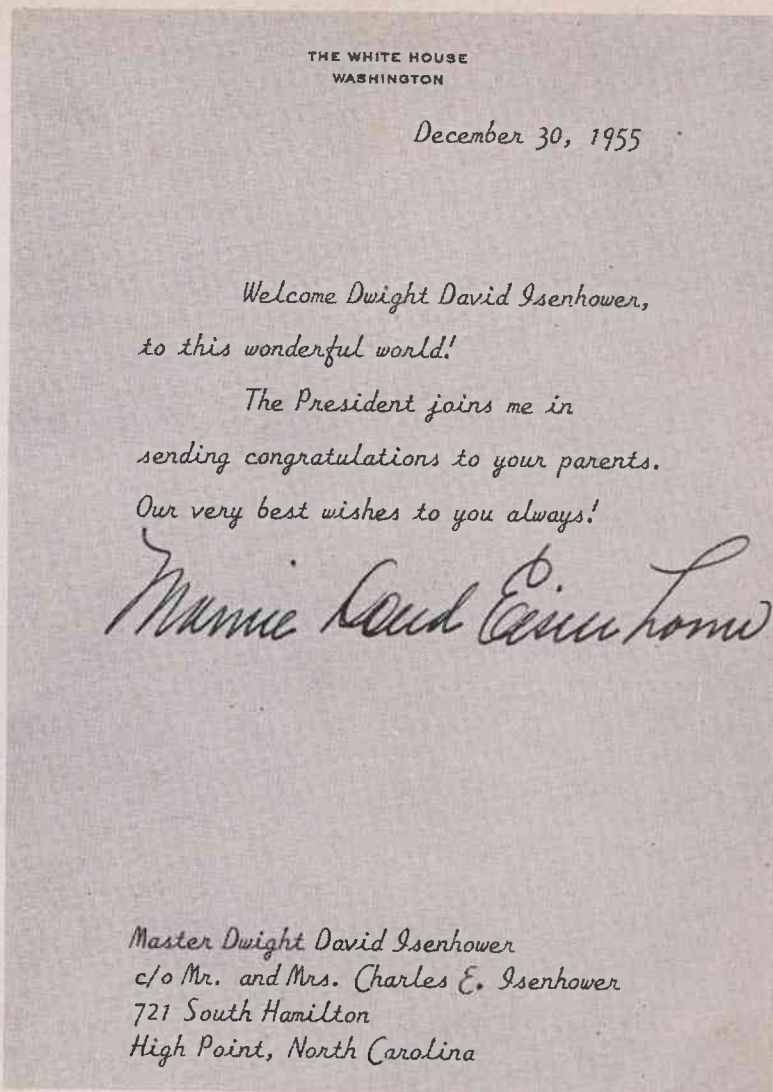 THE WHITE HOUSE
WASHINGTON
December 30, 1955
Welcome Dwight David Isenhower,
to this wonderful world!
The President joins me in
sending congratulations to your parents.
Our very best wishes to you always!
Mamie Doud Eisenhower
Master Dwight David Isenhower
c/o Mr. and Mrs. Charles E. Isenhower
721 South Hamilton
High Point, North Carolina